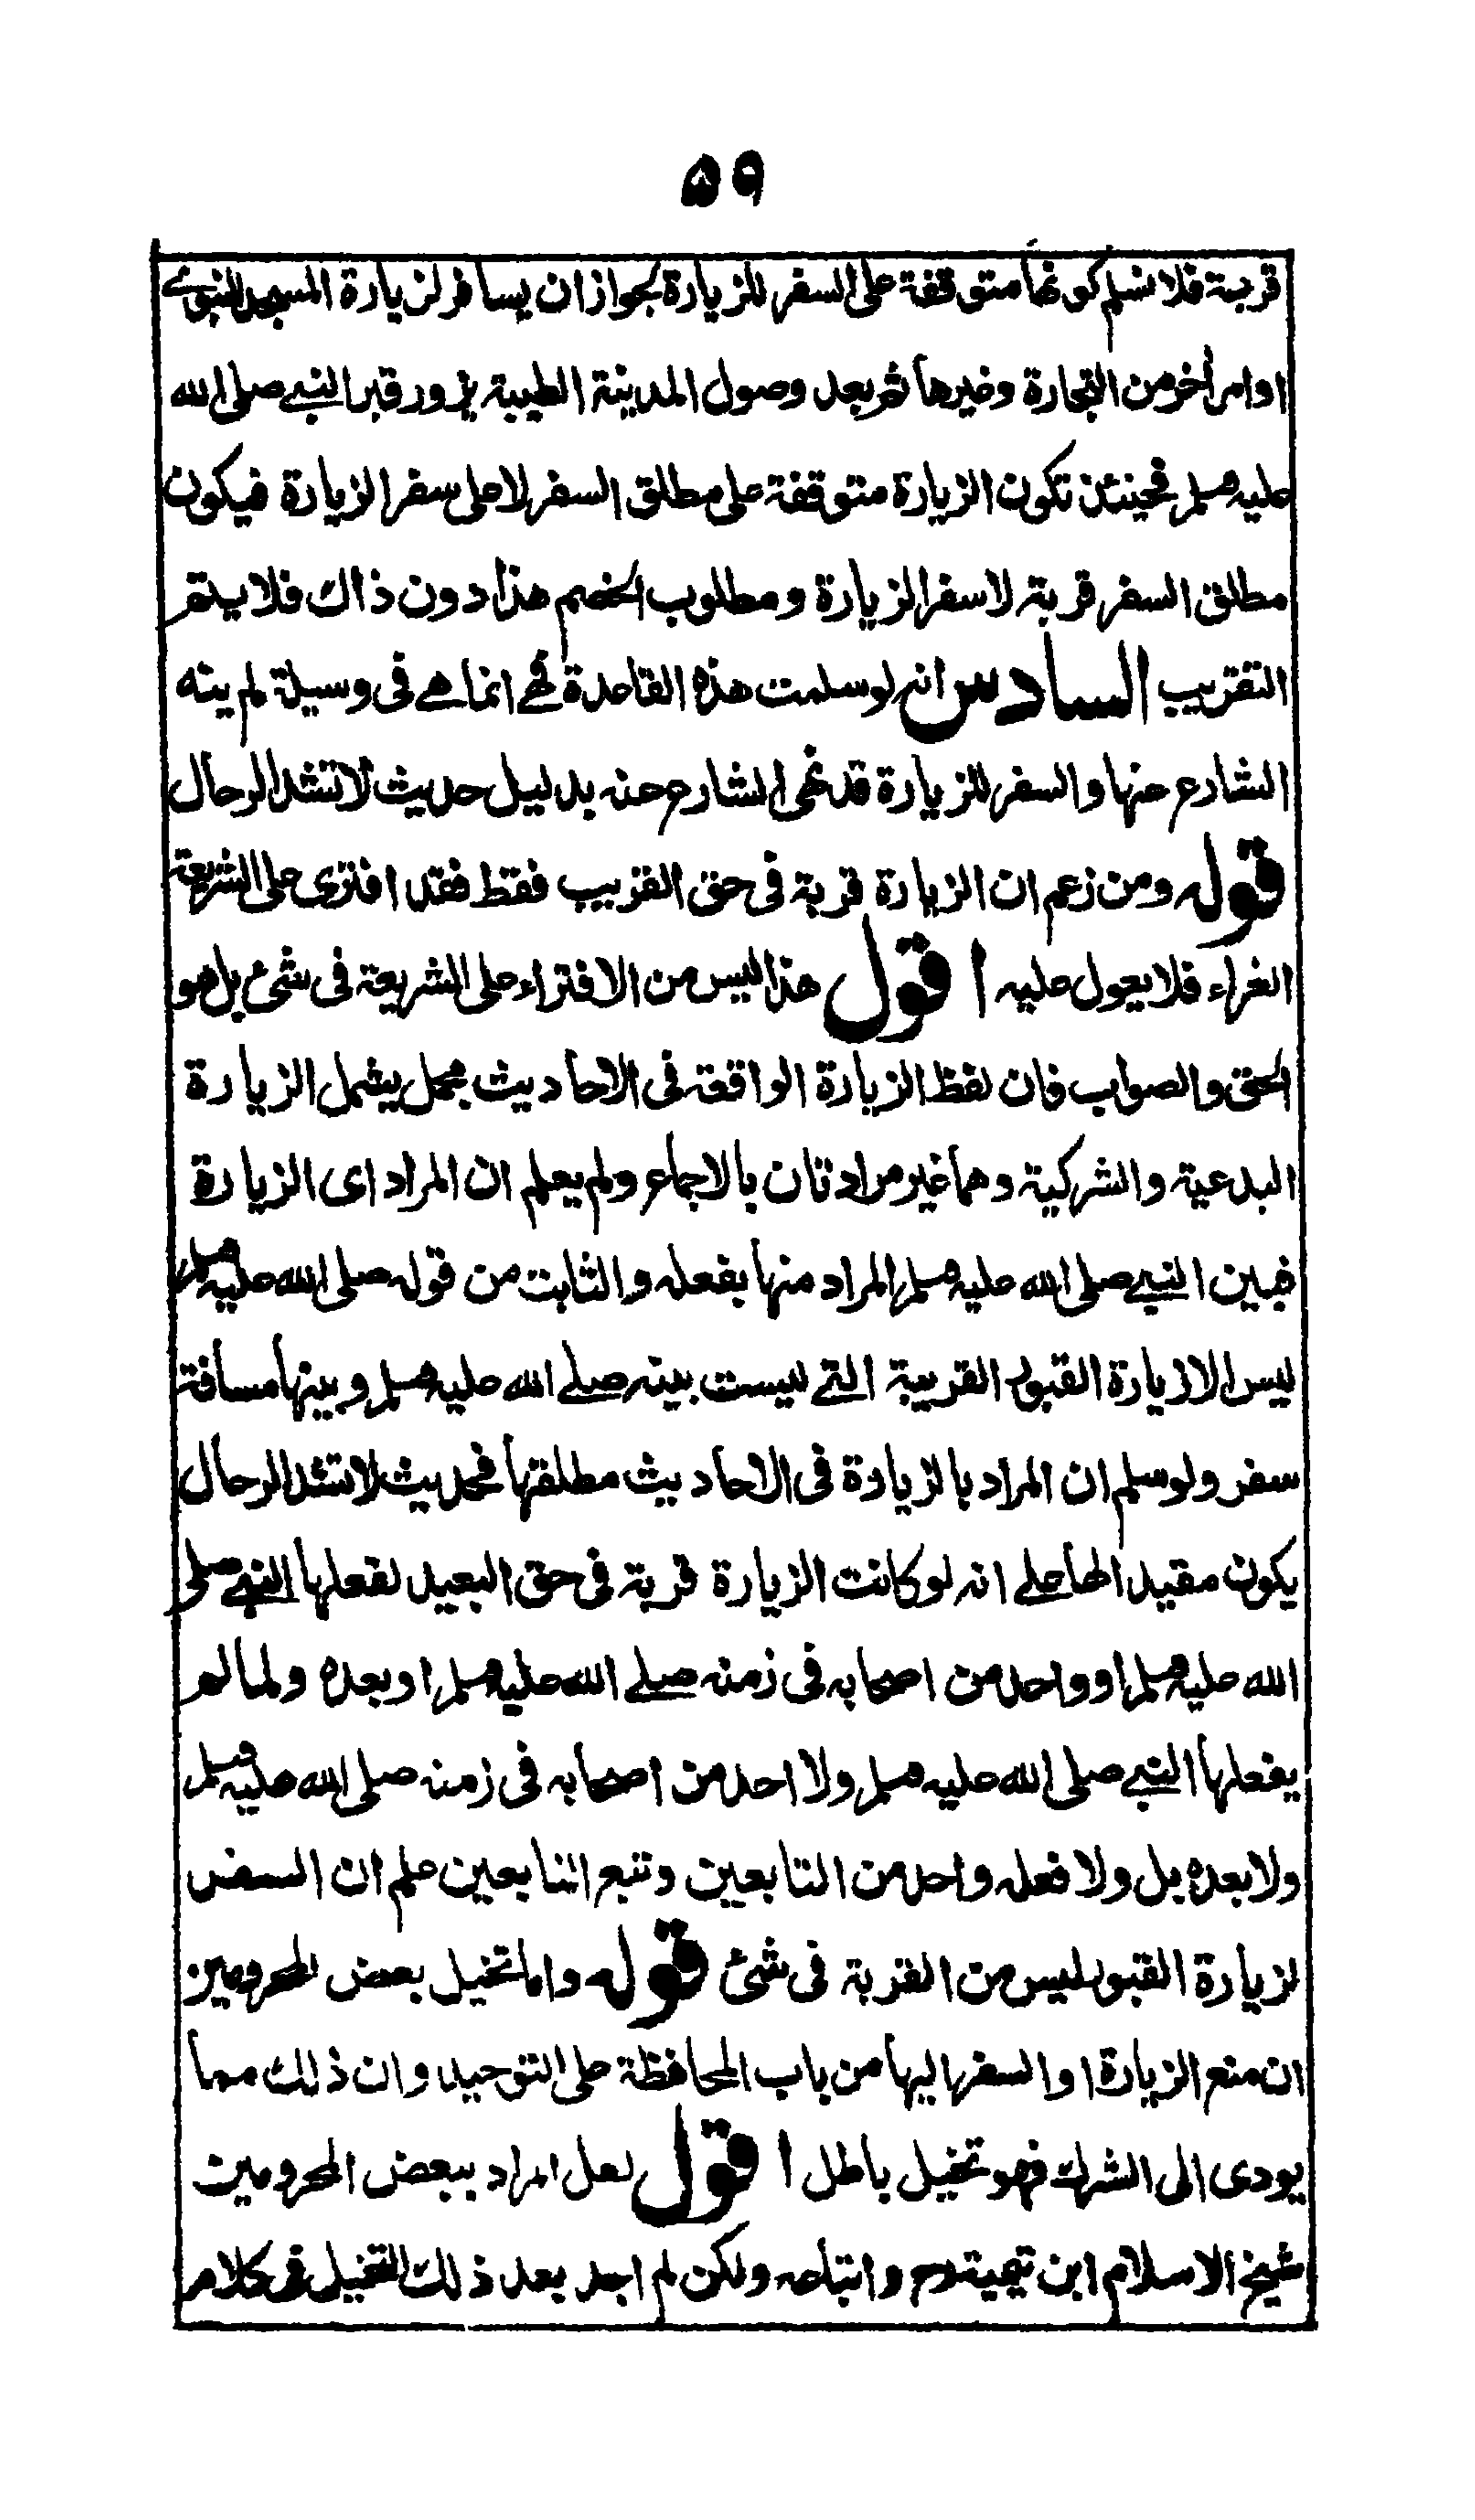 ٥٩
قربة فلا نسلم كونها متوقفة على السفر للزيارة لجواز ان يسافر لزيارة المسجد النبوي
او امر اخر من التجارة وغيرها ثم بعد وصول المدينة الطيبة يزور قبر النبي صلى الله
عليه وسلم فحينئذ تكون الزيارة متوقفة على مطلق السفر لا على سفر الزيارة فيكون
مطلق السفر قربة لا سفر الزيارة ومطلوب الخصم هذا دون ذاك فلا يتم
التقريب السادس انه لو سلمت هذه القاعدة فهي انما هي في وسيلة لم ينه
الشارع عنها والسفر للزيارة قد نهى الشارع عنه بدليل حديث لا تشد الرحال
قوله ومن زعم ان الزيارة قربة في حق القريب فقط فقد افترى على الشريعة
الغراء فلا يعول عليه اقول هذا ليس من الافتراء على الشريعة في شئ بل هو
الحق والصواب فان لفظ الزيارة الواقعة في الاحاديث مجمل يشمل الزيارة
البدعية والشركية وهما غير مرادتان بالاجماع ولم يعلم ان المراد اى الزيارة
فبين النبي صلى الله عليه وسلم المراد منها بفعله والثابت من قوله صلى الله عليه وسلم
ليس الا زيارة القبور القريبة التي ليست بينه صلى الله عليه وسلم وبينها مسافة
سفر ولو سلم ان المراد بالزيارة في الاحاديث مطلقها فحديث لا تشد الرحال
يكون مقيدا لها على انه لو كانت الزيارة قربة في حق البعيد لفعلها النبي صلى
الله عليه وسلم او واحد من اصحابه في زمنه صلى الله عليه وسلم او بعده ولما لم
يفعلها النبي صلى الله عليه وسلم ولا احد من اصحابه في زمنه صلى الله عليه وسلم
ولا بعده بل ولا فعله واحد من التابعين وتبع التابعين علم ان السفر
لزيارة القبور ليس من القربة في شئ قوله واما تخيل بعض المحرومين
ان منع الزيارة او السفر اليها من باب المحافظة على التوحيد وان ذلك مما
يودى الى الشرك فهو تخيل باطل اقول لعل المراد ببعض المحرومين
شيخ الاسلام ابن تيمية رح واتباعه ولكن لم اجد بعد ذلك التخيل في كلام